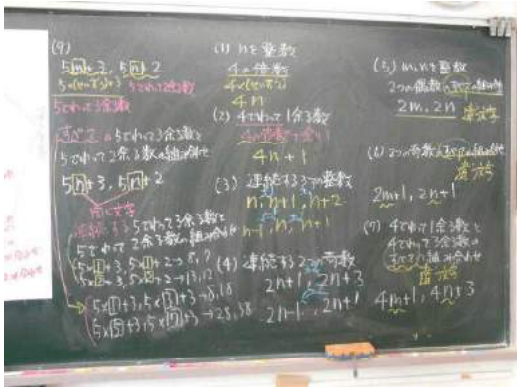 (9)
5m+3, 5n+2
5×(せいすう)+3 5でわって2余る数
5でわって3余る数
すべての5でわって3余る数と
5でわって2余る数の組み合わせ
5n+3, 5n+2
同じ文字
連続する5でわって3余る数と
5でわって2余る数の組み合わせ
5×1+3, 5×1+2→8, 7
5×2+3, 5×2+2→13, 12
5×1+3, 5×3+3→8, 18
5×5+3, 5×7+3→28, 38
(1) nを整数
4の倍数
4×(せいすう)
4n
(2) 4でわって1余る数
4の倍数+余り
4n+1
(3) 連続する3つの整数
n, n+1, n+2
n-1, n, n+1
(4) 連続する2つの奇数
2n+1, 2n+3
2n-1, 2n+1
(5) m,nを整数
2つの偶数
2m, 2n 違う文字
(6) 2つの奇数 すべての組み合わせ
違う文字
2m+1, 2n+1
(7) 4でわって1余る数と
4でわって3余る数の
すべての組み合わせ
違う文字
4m+1, 4n+3